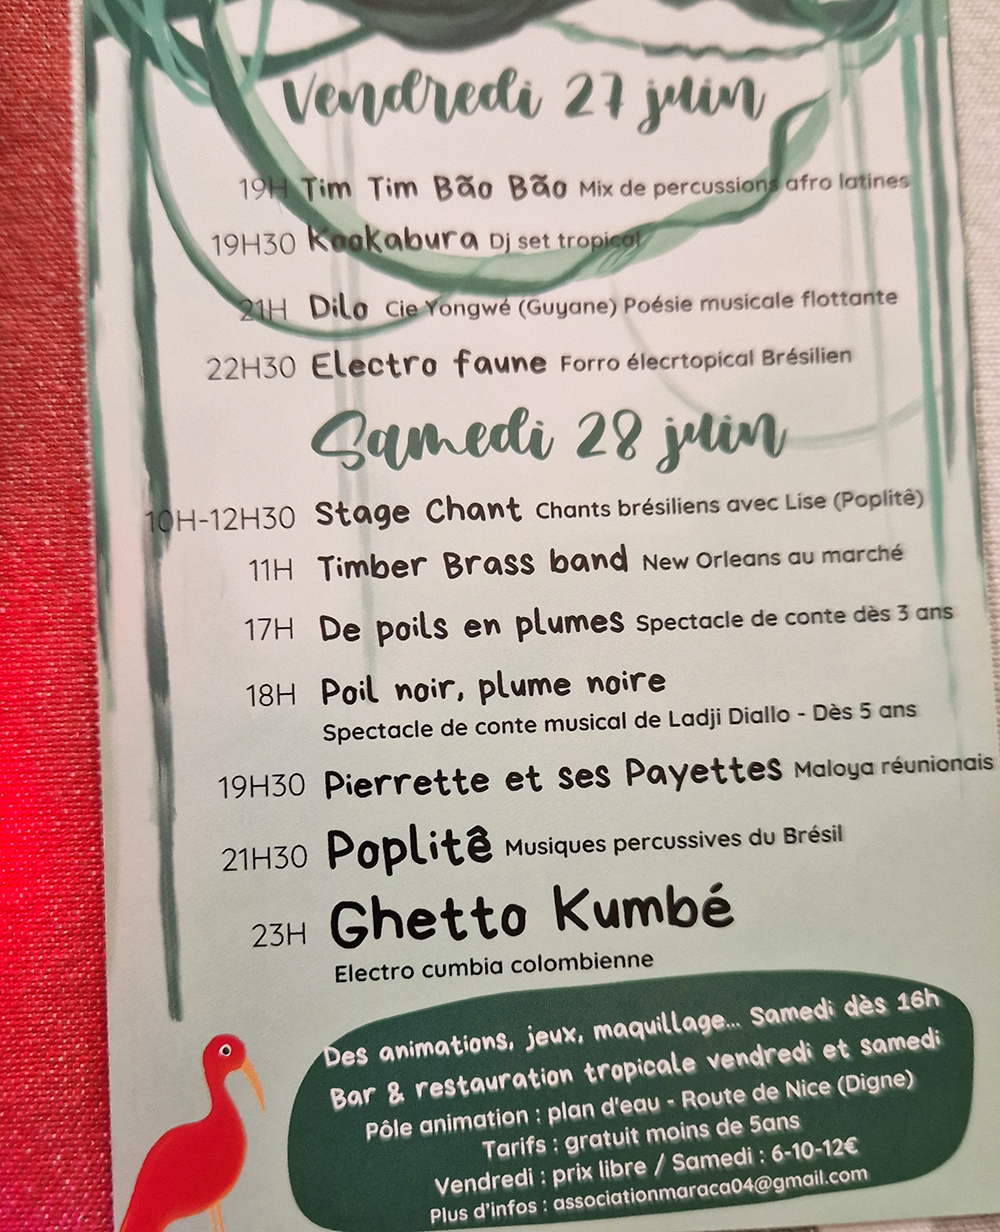 Vendredi 27 juin
19H Tim Tim Bão Bão Mix de percussions afro latines
19H30 Kookabura Dj set tropical
21H Dilo Cie Yongwé (Guyane) Poésie musicale flottante
22H30 Electro faune Forro élecrtopical Brésilien
Samedi 28 juin
10H-12H30 Stage Chant Chants brésiliens avec Lise (Poplitê)
11H Timber Brass band New Orleans au marché
17H De poils en plumes Spectacle de conte dès 3 ans
18H Poil noir, plume noire
Spectacle de conte musical de Ladji Diallo - Dès 5 ans
19H30 Pierrette et ses Payettes Maloya réunionais
21H30 Poplitê Musiques percussives du Brésil
23H Ghetto Kumbé
Electro cumbia colombienne
Des animations, jeux, maquillage... Samedi dès 16h
Bar & restauration tropicale vendredi et samedi
Pôle animation : plan d'eau - Route de Nice (Digne)
Tarifs : gratuit moins de 5ans
Vendredi : prix libre / Samedi : 6-10-12€
Plus d'infos : associationmaraca04@gmail.com